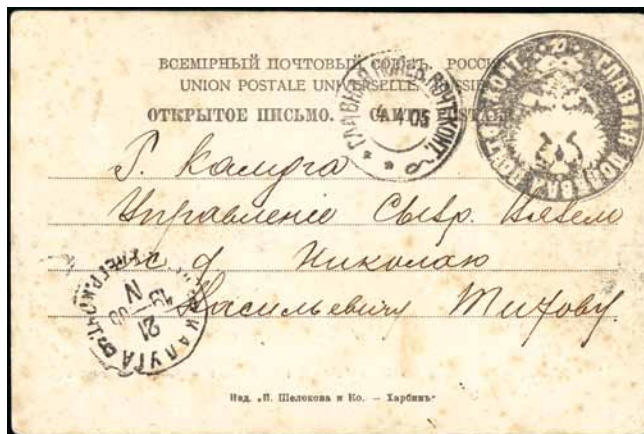 ВСЕМІРНЫЙ ПОЧТОВЫЙ СОЮЗЪ. РОССІЯ
UNION POSTALE UNIVERSELLE. RUSSIE
ОТКРЫТОЕ ПИСЬМО. CARTE POSTALE
ГЛАВНАЯ ПОЛЕВ. ПОЧТ. КОНТ.
4 4 05
ГЛАВНАЯ ПОЛЕВАЯ ПОЧТОВ. КОНТ.
Г. Калуга
Управленіе Сызр. Вязем.
ж. д. Николаю
Васильевичу Титову.
КАЛУГА ПОЧТ. ТЕЛЕГР. КОН.
21 IV 05
Изд. „И. Шелокова и Ко. – Харбинъ“